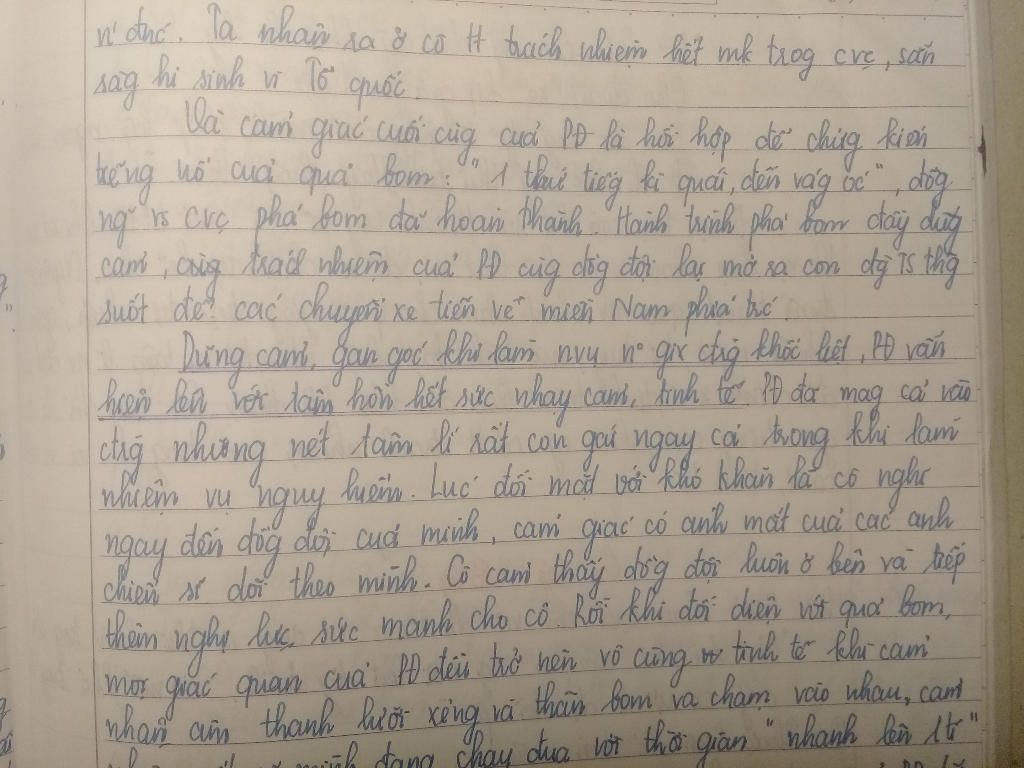 n' đức. Ta nhận ra ở cô tt trách nhiệm hết mk trog cvc, sẵn
sàg hi sinh vì Tổ quốc.
Và cảm giác cuối cùg của PĐ là hồi hộp để chứng kiến
tiếng nổ của quả bom: "1 thứ tiếg kì quái, đến vág óc", đồg
ng~ vs cvc phá bom đã hoàn thành. Hành trình phá bom đầy dũg
cảm, cùg trách nhiệm của PĐ cùg đồg đội lại mở ra con đg TS thg
suốt để các chuyến xe tiến về miền Nam phía trc.
Dũng cảm, gan góc khi làm nvụ nơi ctrg khốc liệt, PĐ vẫn
hiện lên với tâm hồn hết sức nhạy cảm, tinh tế. PĐ đã mag cả vào
ctrg những nét tâm lí rất con gái ngay cả trong khi làm
nhiệm vụ nguy hiểm. Lúc đối mặt với khó khăn là cô nghĩ
ngay đến đồg đội của mình, cảm giác có ánh mắt của các anh
chiến sĩ dõi theo mình. Cô cảm thấy đồg đội luôn ở bên và tiếp
thêm nghị lực, sức mạnh cho cô. Rồi khi đối diện với quả bom,
mọi giác quan của PĐ đều trở nên vô cùng tinh tế khi cảm
nhận âm thanh lưỡi xẻng và thân bom va chạm vào nhau, cảm
mình đang chạy đua với thời gian "nhanh lên 1 tí"